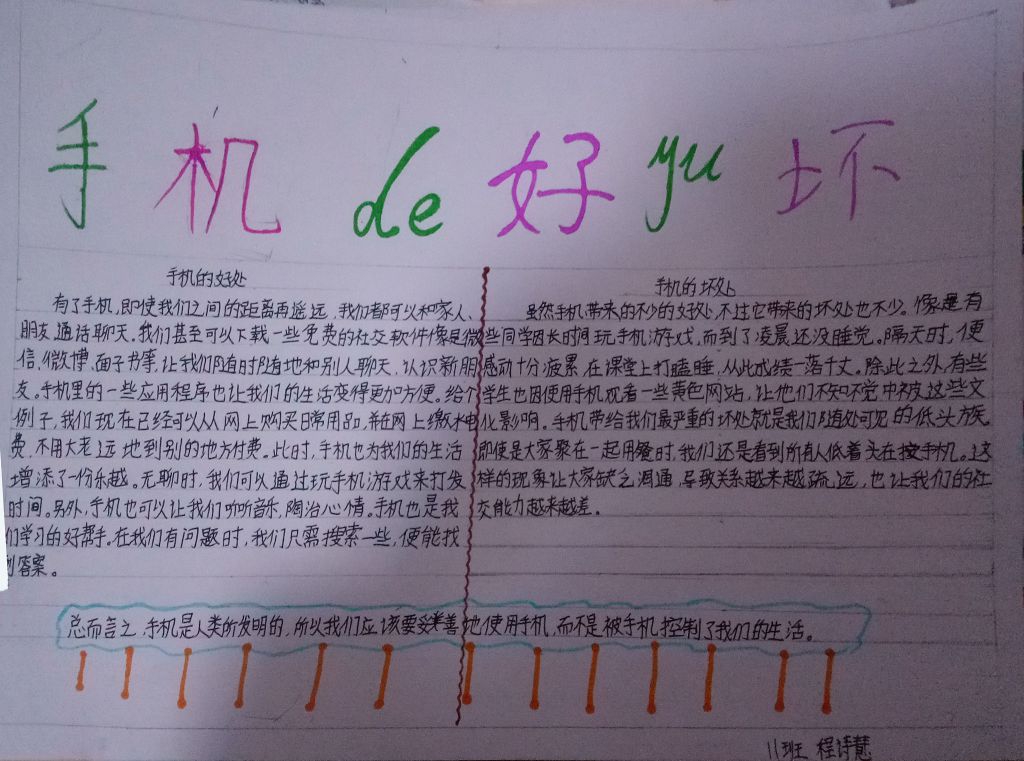 手机de好yu坏
手机的好处
有了手机,即使我们之间的距离再遥远,我们都可以和家人、
朋友通话聊天。我们甚至可以下载一些免费的社交软件像是微
信、微博、面子书等,让我们随时随地和别人聊天、认识新朋
友。手机里的一些应用程序也让我们的生活变得更加方便。给个
例子,我们现在已经可以从网上购买日常用品,并在网上缴水电
费,不用大老远地到别的地方付费。此时,手机也为我们的生活
增添了一份乐趣。无聊时,我们可以通过玩手机游戏来打发
时间。另外,手机也可以让我们听听音乐,陶冶心情。手机也是我
们学习的好帮手。在我们有问题时,我们只需搜索一些,便能找
到答案。
手机的坏处
虽然手机带来的不少的好处,不过它带来的坏处也不少。像是有
些同学因长时间玩手机游戏,而到了凌晨还没睡觉。隔天时,便
感动十分疲累,在课堂上打瞌睡,从此成绩一落千丈。除此之外,有些
学生也因使用手机观看一些黄色网站,让他们不知不觉中被这些文
化影响。手机带给我们最严重的坏处就是我们随处可见的低头族。
即使是大家聚在一起用餐时,我们还是看到所有人低着头在按手机。这
样的现象让大家缺乏沟通,导致关系越来越疏远,也让我们的社
交能力越来越差。
总而言之,手机是人类所发明的,所以我们应该要妥善地使用手机,而不是被手机控制了我们的生活。
11班 程诗慧